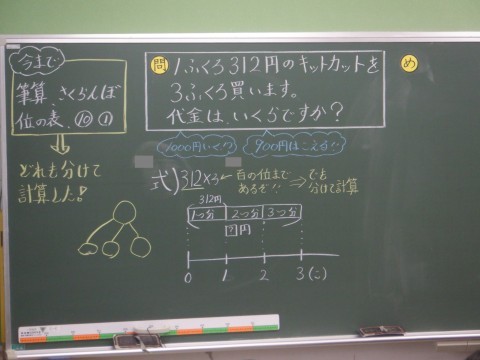 今まで
筆算、さくらんぼ
位の表、⑩ ①
どれも分けて
計算した!
問
1ふくろ312円のキットカットを
3ふくろ買います。
代金は、いくらですか?
め
1000円いく!?
900円はこえる!!
式)312×3
百の位まで
あるぞ!!
⇒でも
分けて計算
312円
1つ分 2つ分 3つ分
?円
0 1 2 3(こ)